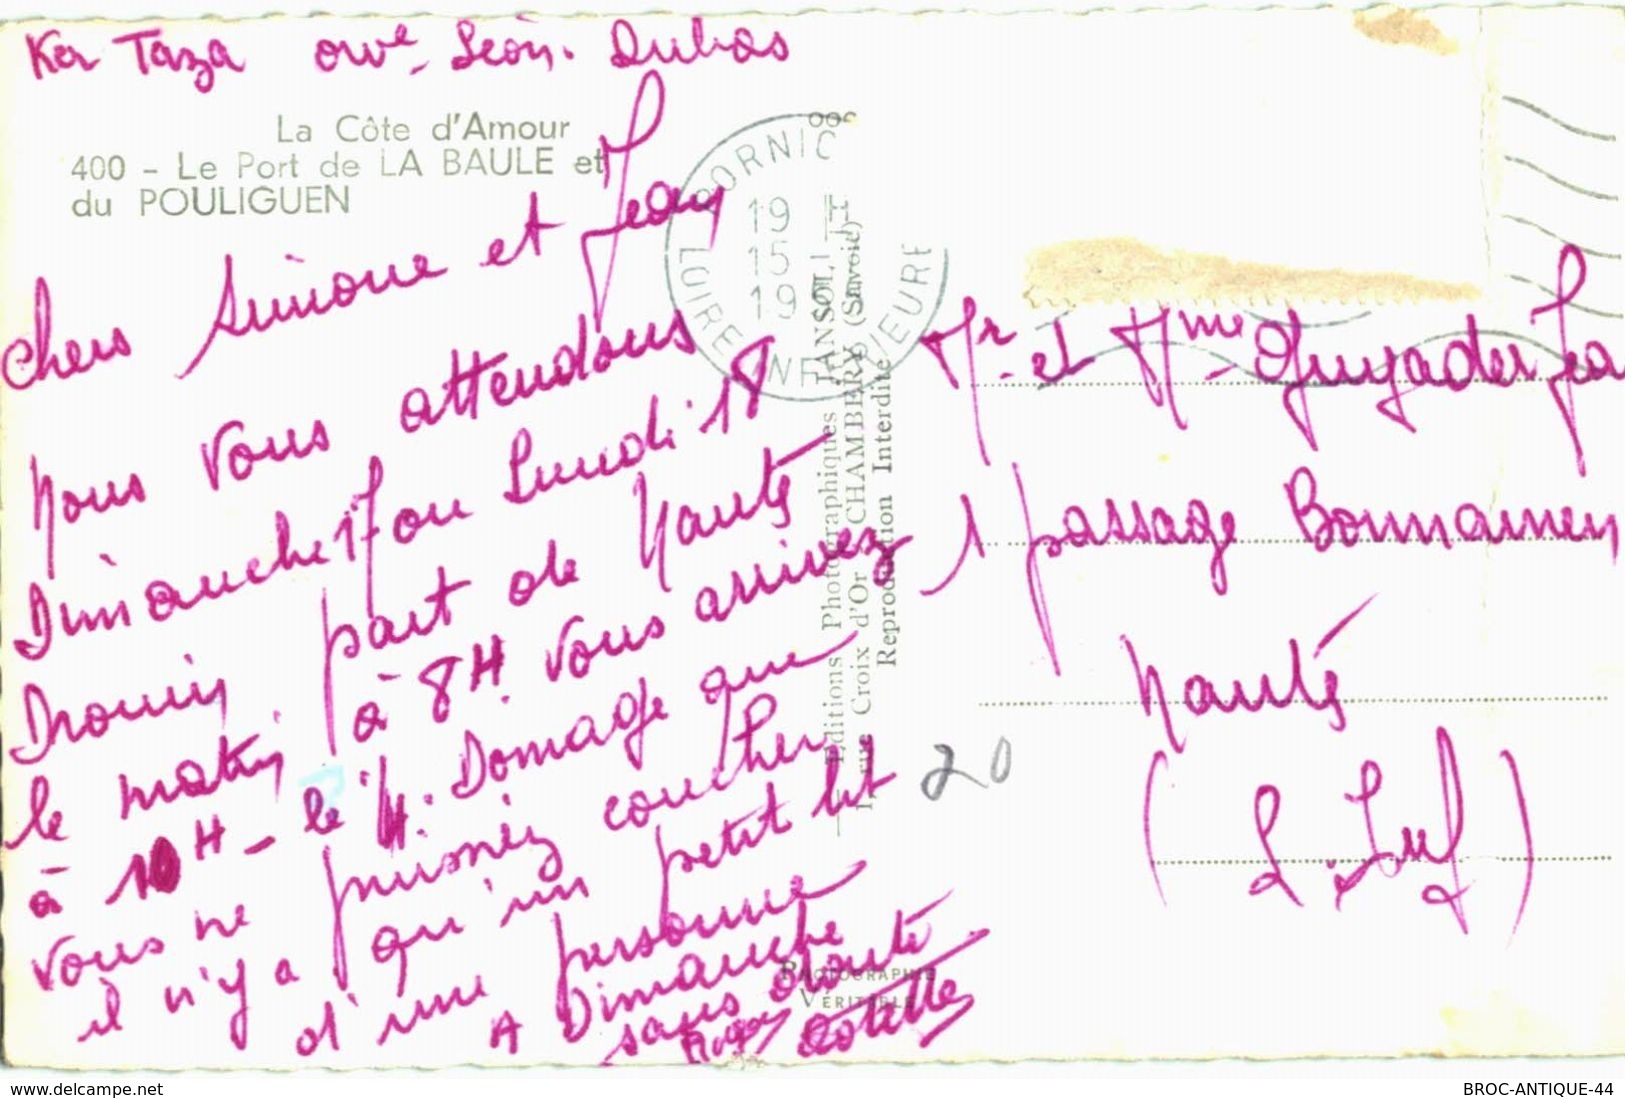 Ker Taza ave Léon. Dubas
La Côte d'Amour
400 - Le Port de LA BAULE et
du POULIGUEN
Chers Simone et Jean
Nous vous attendons
Dimanche 17 ou Lundi 18
Drouin part de Nantes
le matin à 8H vous arrivez
à 10H - le 4. Domage que
vous ne puissiez coucher
il n'y a qu'un petit lit
d'une personne
A Dimanche
sans doute
Roger
PORNIC
19
15
19
LOIRE INFERIEURE
Editions Photographiques JANSOL
1, rue Croix d'Or CHAMBERY (Savoie)
Reproduction Interdite
PHOTOGRAPHIE
VÉRITABLE
Mr et Mme Guyader Jea
1 passage Bonnamen
Nantes
(L. Inf)
20
www.delcampe.net
BROC-ANTIQUE-44